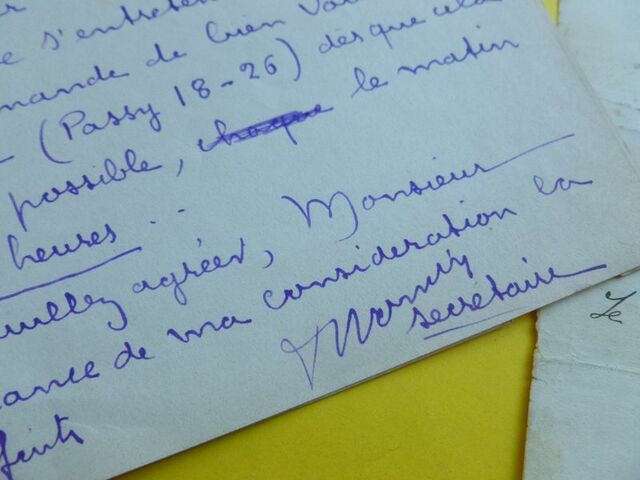 s'entreten
mande de bien vou
(Passy 18-26) dès que cela
possible, chaque le matin
heures..
uillez agréer, Monsieur
ance de ma consideration la
secrétaire
Le